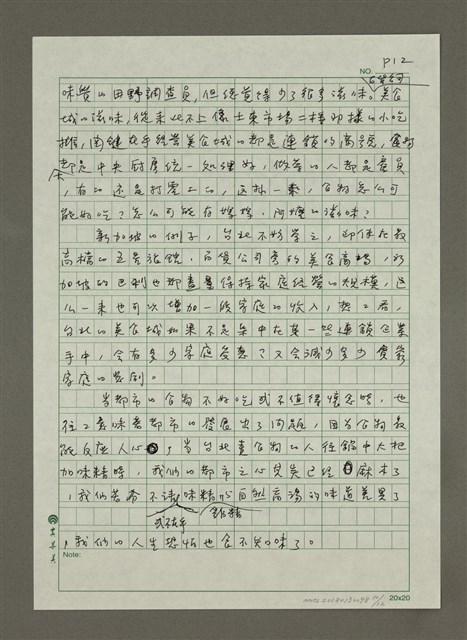 P12
NO.
味覺的田野調查員，但總覺得少了很多滋味。美食
城的滋味，從來比不上像士東市場二樓那樣的小吃
攤，關鍵在乎經營美食城的都是連鎖的商號，食物
都是中央廚房統一處理好，做菜的人都是雇員
，有的還是打零工的，這樣一來，食物怎么可
能好吃？怎么可能有媽媽、阿嬤的滋味？
新加坡的例子，台北不妨學之，即使在最
高檔的五星旅館、百貨公司旁的美食廣場，新
加坡的巴剎也都盡量保持家庭經營的規模，這
么一來也可以增加一般家庭的收入，想一想，
台北的美食城如果不是集中在某一些連鎖企業
手中，會有多少家庭受惠？又會減少多少貧窮
家庭的悲劇。
當都市的食物不好吃或不值得懷念時，也
往往意味着都市的發展出了問題，因為食物最
能反應人心，當台北賣食物的人往鍋中大把
加味精時，我們的都市之心見已經麻木了
，我們若再不請味精和自然高湯的味道差異了
或不在乎 雞精
，我們的人生恐怕也食不知味了。
Note:
20x20